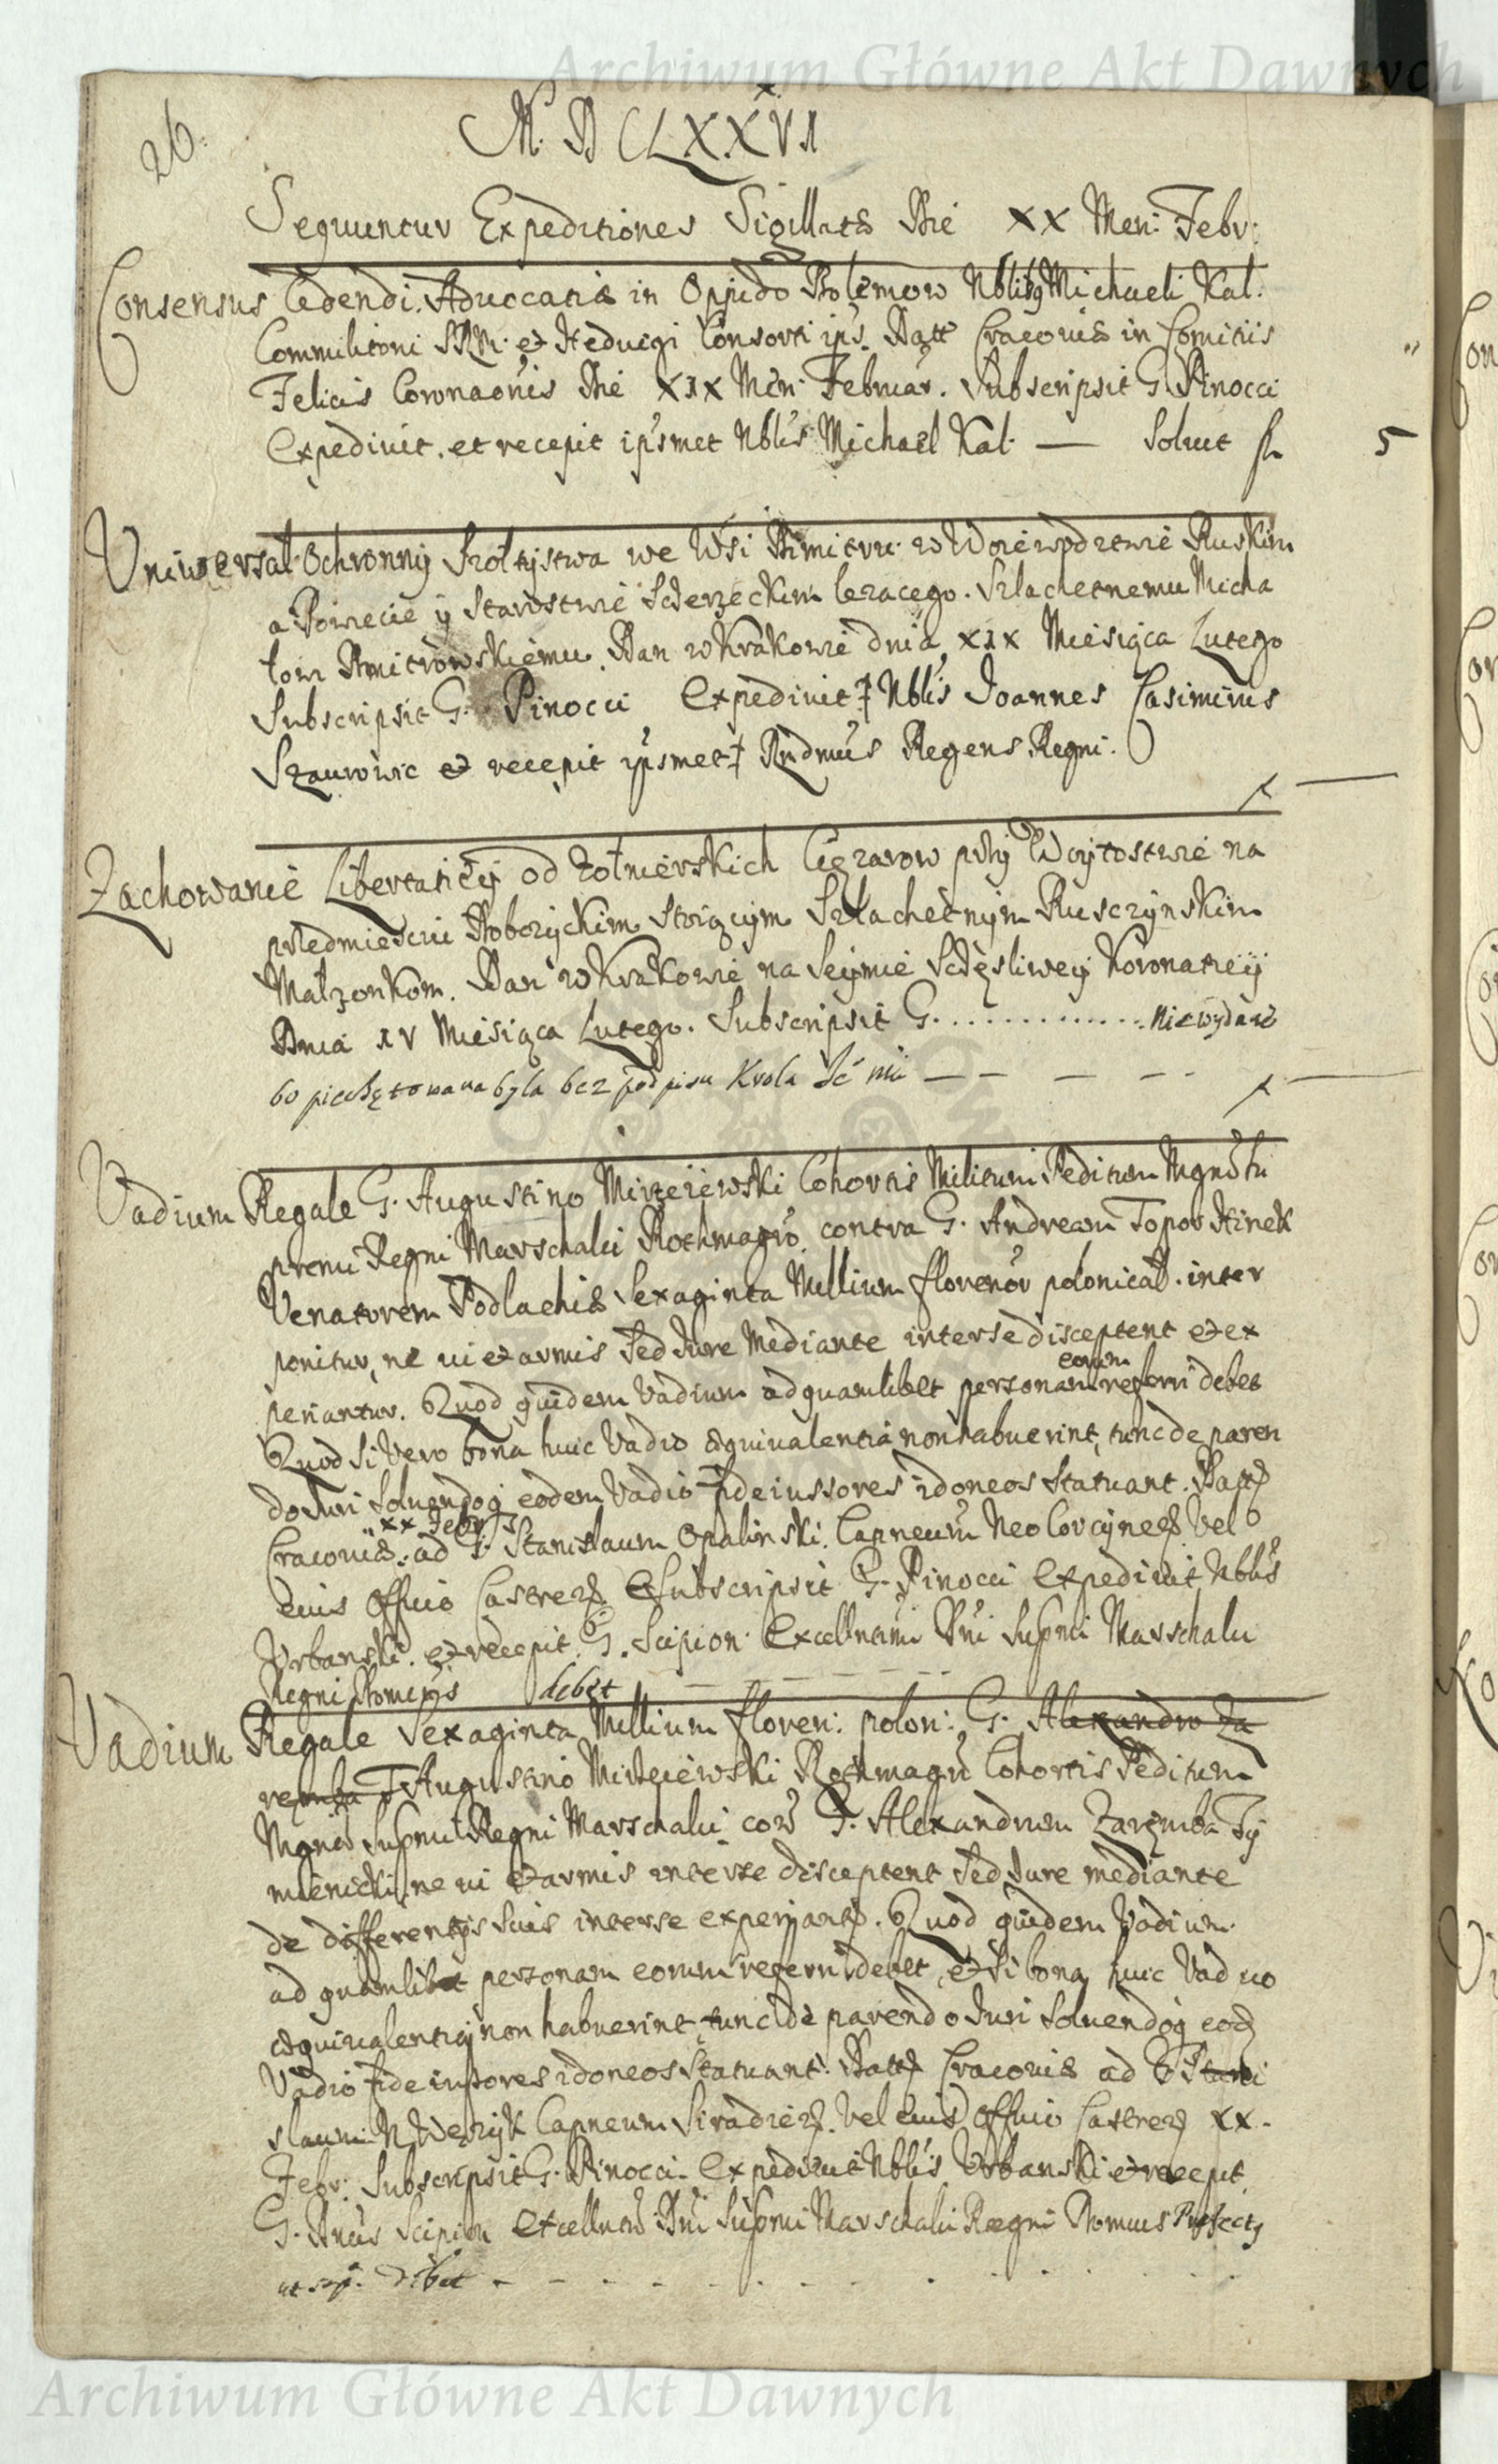 Archiwum Główne Akt Dawnych
26.
M. D CLXXVI
Sequuntur Expeditiones Sigillatæ Die XX Men: Febr:
Consensus Cedendi Aduocatiæ in Oppido Bolemow Nbli Michaeli Kal.
Commilitoni SRM. et Heduigi Consorti ips. Datt Cracouiæ in Comitiis
Felicis Coronaonis Die XIX Men: Februar. Subscripsit G. Pinocci
Expediuit. et recepit ipsmet Nblis Michaël Kal. — Soluit fl. 5
Uniwersał Ochronny Szołtystwa we Wsi Dmitru w Woiewodztwie Ruskim
a Powiecie y Starostwie Sczerzeckim lezacego. Szlachetnemu Micha
łowi Dmitrowskiemu. Dan w Krakowie dnia XIX Miesiąca Lutego
Subscripsit G. Pinocci Expediuit Nblis Joannes Casimirus
Szaurowic et recepit ipsmet Rndmus Regens Regni.
Zachowanie Libertaticÿ od Zołnierskich Cięzarow przy Woytostwie na
przedmiesciu Dobczyckim Stoiącym Szlachetnym Rusczynskim
Małzonkom. Dan w Krakowie na Seymie Sczęsliwey Koronatieÿ
Dnia IV Miesiąca Lutego. Subscripsit G. . . . . . . . . . . . . . Nie wydane
bo pieczętowana była bez podpisu Krola Jć mi — — — — —
Vadium Regale G. Augustino Mirzeiewski Cohortis Militum Peditum Mgnd Su
premi Regni Marschalci Rothmagro contra G. Andream Topor Hinek
Venatorem Podlachiæ Sexaginta Millium florenor polonical. inter
ponitur, ne ui et armis Sed Jure Mediante inter se disceptent et ex
periantur. Quod quidem Vadium ad quamlibet personam eorum referri debet
Quod si vero bona huic Vadio æquiualentia non habuerint, tunc de paren
do Juri Soluendoq eodem Vadio fideiussores idoneos Statuant. Datt
Cracouiæ XX Febr. ad G. Stanislaum Opalinski. Capneum Neo Corcynen Vel
eius Officio Castren Subscripsit G. Pinocci Expediuit Nblis
Urbanski. et recepit G. Scipion Excellnmi Dni Supmi Marschalci
Regni debet — — — —
Vadium Regale Sexaginta Millium floren: polon: G. Alexandro Za
remba Augustino Mirzeiewski Rothmagro Cohortis Peditum
Mgnd Supmi Regni Marschalci con G. Alexandrum Zaremba Ty
mienicki ne ui et armis inter se disceptent Sed Jure mediante
de differentijs suis inter se experiant. Quod quidem Vadium
ad quamlibet personam eorum referri debet, et Si bona huic Vadio
æquiualentia non habuerint, tunc de parendo Juri Soluendoq eod
Vadio fideiussores idoneos Statuant. Datt Cracouiæ ad G. Stani
slaum Wezyk Capneum Siradien. Vel eius Officio Castren XX.
Febr: Subscripsit G. Pinocci. Expediuit Nblis Urbanski et recepit
G. Dnus Scipion Excellnmi Dni Supmi Marschalci Regni Domus
ut sup. debet - - - - - - -
Archiwum Główne Akt Dawnych